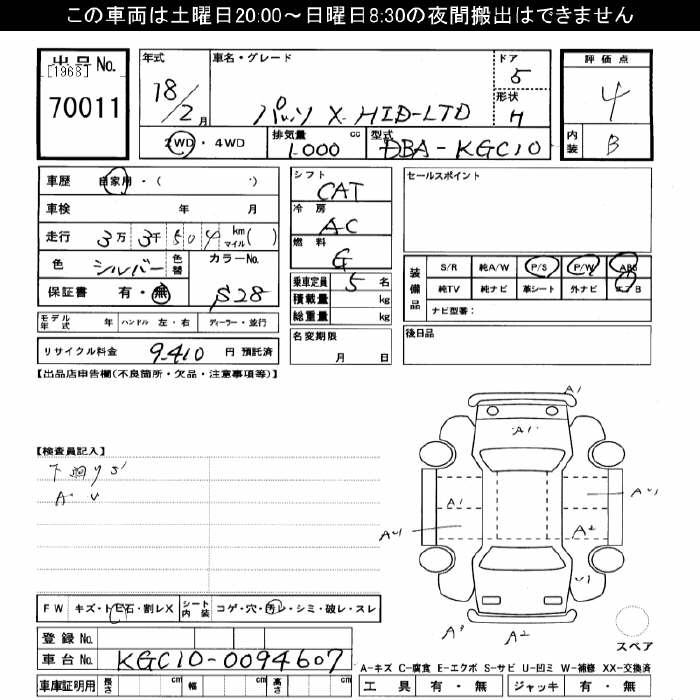 この車両は土曜日20:00〜日曜日8:30の夜間搬出はできません
出品No.
[1968]
70011
年式
18/2月
車名・グレード
パッソ X HID-LTD
ドア
5
形状
評価点
4
内装
B
2WD・4WD
排気量
cc
1.000
型式
DBA-KGC10
車歴 自家用・( )
車検 年 月
走行 3万 3千 5 0 4 km マイル( )
色 シルバー 色替 カラーNo.
S28
保証書 有・無
モデル年式 年 ハンドル 左・右 ディーラー・並行
リサイクル料金 9.410 円 預託済
シフト
CAT
冷房
AC
燃料
G
乗車定員 5 名
積載量 kg
総重量 kg
名変期限
月 日
セールスポイント
装備品
S/R 純A/W P/S P/W ABS
純TV 純ナビ 革シート 外ナビ エアB
ナビ型番:
後日品
【出品店申告欄(不良箇所・欠品・注意事項等)】
【検査員記入】
A U
FW キズ・トビ石・割レX シート内装 コゲ・穴・汚レ・シミ・破レ・スレ
登録No.
車台No. KGC10-0094607
車庫証明用 長さ cm 幅 cm 高さ cm
A1
A1
A1
AU1
AU1
A2
U1
A3
A2
スペア
A-キズ C-腐食 E-エクボ S-サビ U-凹ミ W-補修 XX-交換済
工具 有・無 ジャッキ 有・無